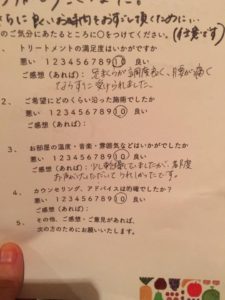 さらに良いお時間をお過ごし頂くために…
のご気分にあたるところに○をつけてください。(任意です)
1、 トリートメントの満足度はいかがですか
悪い 1 2 3 4 5 6 7 8 9 10 良い
ご感想(あれば): 足まくらが調度良く、腰が痛く
ならずに受けられました。
2、 ご希望にどのくらい沿った施術でしたか
悪い 1 2 3 4 5 6 7 8 9 10 良い
ご感想(あれば):
3、 お部屋の温度・音楽・雰囲気などはいかがでしたか
悪い 1 2 3 4 5 6 7 8 9 10 良い
ご感想(あれば): 少し乾燥していましたが、
お声がけいただいてうれしかったです。
4、 カウンセリング、アドバイスは的確でしたか?
悪い 1 2 3 4 5 6 7 8 9 10 良い
ご感想(あれば):
5、 その他、ご感想・ご意見があれば、
次の方のためにお願いいたします。